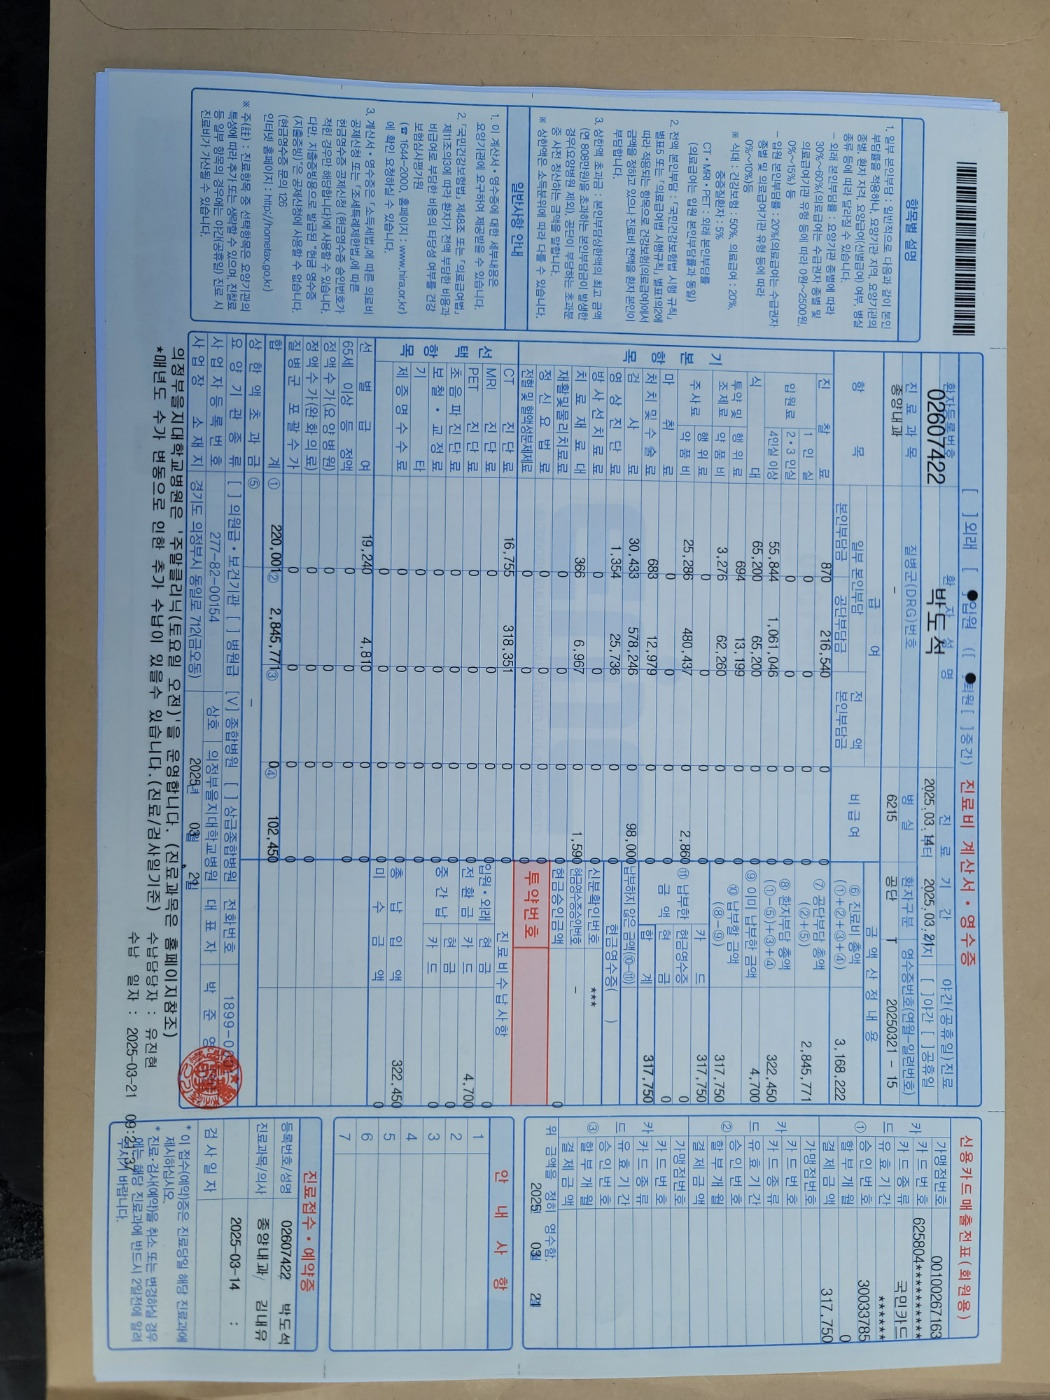 [ ]외래 [●]입원 ([●]퇴원[ ]중간) 진료비 계산서·영수증
환자등록번호 환자 성명 진료기간 야간(공휴일)진료
02607422 박도석 2025.03.14부터 2025.03.21까지 [ ]야간 [ ]공휴일
진료과목 질병군(DRG)번호 병실 환자구분 영수증번호(연월-일련번호)
종양내과 - 6215 공단 T 20250321 - 15
항목 급여 비급여 금액산정내용
일부 본인부담 전액 본인부담금
본인부담금 공단부담금
기본항목
진찰료 870 216,540 0 0
입원료 1인실 0 0 0 0
2·3인실 0 0 0 0
4인실 이상 55,844 1,061,046 0 0
식대 65,200 65,200 0 0
투약 및 조제료 행위료 694 13,199 0 0
약품비 3,276 62,260 0 0
주사료 행위료 0 0 0 0
약품비 25,286 480,437 0 2,860
마취료 0 0 0 0
처치및수술료 683 12,979 0 0
검사료 30,433 578,246 0 98,000
영상진단료 1,354 25,736 0 0
방사선치료료 0 0 0 0
치료재료대 366 6,967 0 1,590
재활및물리치료료 0 0 0 0
정신요법료 0 0 0 0
전혈 및 혈액성분제제료 0 0 0 0
선택항목
CT 진단료 16,755 318,351 0 0
MRI 진단료 0 0 0 0
PET 진단료 0 0 0 0
초음파진단료 0 0 0 0
보철·교정료 0 0 0 0
기타 0 0 0 0
제증명수수료 0 0 0 0
선별급여 19,240 4,810 0 0
65세 이상 등 정액 0 0 0 0
정액수가(요양병원) 0 0 0 0
정액수가(완화의료) 0 0 0 0
질병군 포괄수가 0 0 0 0
합계 ① 220,001 ② 2,845,771 ③ 0 ④ 102,450
상한액 초과금 ⑤ -
⑥ 진료비 총액 (①+②+③+④) 3,168,222
⑦ 공단부담 총액 (②+⑤) 2,845,771
⑧ 환자부담 총액 (①-⑤)+③+④ 322,450
⑨ 이미 납부한 금액 4,700
⑩ 납부할 금액 (⑧-⑨) 317,750
⑪ 납부한 금액 카드 317,750
현금영수증 0
현금 0
합계 317,750
납부하지 않은 금액(⑩-⑪) 0
현금영수증( )
신분확인번호 ***
현금영수증승인번호 -
현금승인금액 0
투약번호
진료비수납사항
입원·외래 현금
전환금 카드 4,700
중간납 현금 0
카드 0
총 납입액 322,450
미수금액 0
요양기관종류 [ ] 의원급·보건기관 [ ] 병원급 [V] 종합병원 [ ] 상급종합병원
사업자등록번호 277-82-00154 상호 의정부을지대학교병원 전화번호 1899-0
사업장 소재지 경기도 의정부시 동일로 712(금오동) 대표자 박준영
2025년 03월 21일
의정부을지대학교병원은 '주말클리닉(토요일 오전)'을 운영합니다. (진료과목은 홈페이지참조)
*매년도 수가 변동으로 인한 추가 수납이 있을수 있습니다.(진료/검사일기준)
수납담당자 : 유진현
수납 일자 : 2025-03-21 09:21:37
항목별 설명
1. 일부 본인부담 : 일반적으로 다음과 같이 본인
부담률을 적용하나, 요양기관 지역, 요양기관의
종별, 환자 자격, 요양급여(선별급여) 여부, 병실
종류 등에 따라 달라질 수 있습니다.
- 외래 본인부담률 : 요양기관 종별에 따라
30%~60%(의료급여는 수급권자 종별 및
의료급여기관 유형 등에 따라 0원~2500원,
0%~15%) 등
- 입원 본인부담률 : 20%(의료급여는 수급권자
종별 및 의료급여기관 유형 등에 따라
0%~10%)등
※ 식대 : 건강보험 : 50%, 의료급여 : 20%,
중증질환자 : 5%
CT·MRI·PET : 외래 본인부담률
(의료급여는 입원 본인부담률과 동일)
2. 전액 본인부담 : 「국민건강보험법 시행 규칙」
별표6 또는 「의료급여법 시행규칙」 별표1의2에
따라 적용되는 항목으로 건강보험(의료급여)에서
금액을 정하고 있으나 진료비 전액을 환자 본인이
부담합니다.
3. 상한액 초과금 : 본인부담상한액의 최고 금액
(연 808만원)을 초과하는 본인부담금이 발생한
경우(요양병원 제외), 공단이 부담하는 초과분
중 사전 정산하는 금액을 말합니다.
※ 상한액은 소득분위에 따라 다를 수 있습니다.
일반사항 안내
1. 이 계산서·영수증에 대한 세부내용은
요양기관에 요구하여 제공받을 수 있습니다.
2. 「국민건강보험법」 제48조 또는 「의료급여법」
제11조의3에 따라 환자가 전액 부담한 비용과
비급여로 부담한 비용의 타당성 여부를 건강
보험심사평가원
(☎ 1644-2000, 홈페이지 : www.hira.or.kr)
에 확인 요청하실 수 있습니다.
3. 계산서·영수증은 「소득세법」에 따른 의료비
공제신청 또는 「조세특례제한법」에 따른
현금영수증 공제신청 (현금영수증 승인번호가
적힌 경우만 해당합니다)에 사용할 수 있습니다.
다만, 지출증빙용으로 발급된 "현금영수증
(지출증빙)"은 공제신청에 사용할 수 없습니다.
(현금영수증 문의 126
인터넷 홈페이지 : http://hometax.go.kr)
※ 주(註) : 진료항목 중 선택항목은 요양기관의
특성에 따라 추가 또는 생략할 수 있으며, 진찰료
등 일부 항목의 경우에는 야간(공휴일) 진료 시
진료비가 가산될 수 있습니다.
신용카드매출전표(회원용)
가맹점번호 00100267163
카드번호 625804**********
카드종류 국민카드
유효기간 ******
① 승인번호 30033785
할부개월 0
결제금액 317,750
가맹점번호
카드번호
카드종류
유효기간
② 승인번호
할부개월
결제금액
가맹점번호
카드번호
카드종류
유효기간
③ 승인번호
할부개월
결제금액
위 금액을 정히 영수함.
2025 03월 21일
안내사항
1
2
3
4
5
6
7
진료접수·예약증
등록번호/성명 02607422 박도석
진료과목/의사 종양내과/ 김내유
2025-03-14 :
검사일자
* 이 접수(예약)증은 진료당일 해당 진료과에
제시하십시오.
* 진료·검사(예약)을 취소 또는 변경하실 경우
에는 해당 진료과에 반드시 2일전에 알려
주시기 바랍니다.